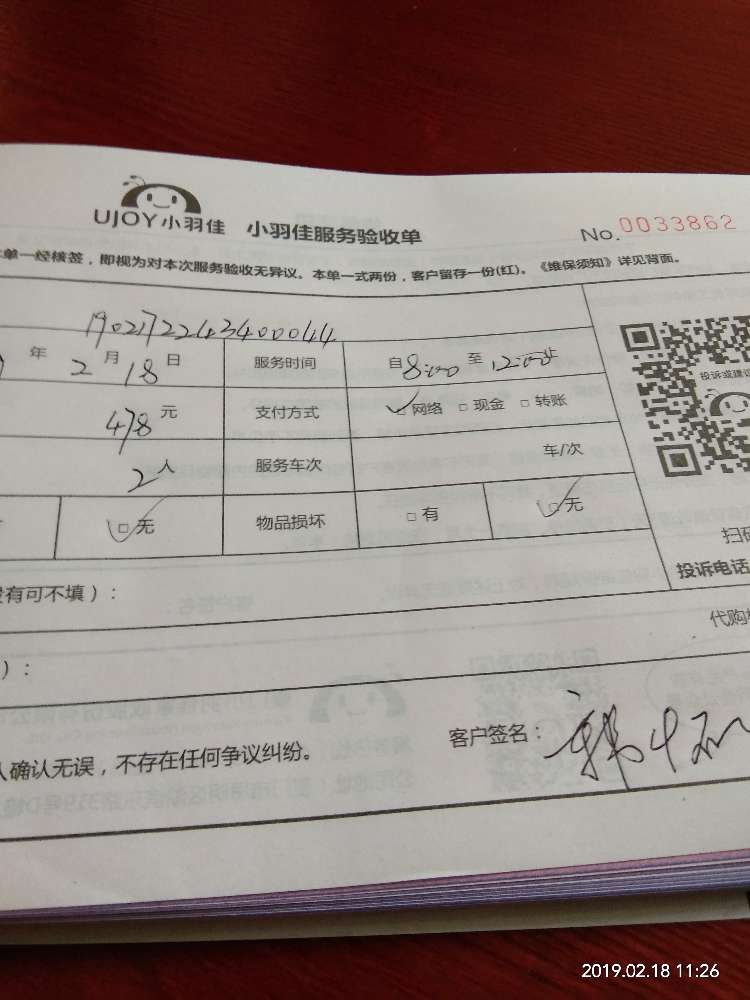 UJOY小羽佳 小羽佳服务验收单 No.0033862
单一经核签，即视为对本次服务验收无异议。本单一式两份，客户留存一份(红)。《维保须知》详见背面。
年 2月18日 服务时间 自8:00至12:00止
投诉或建议
478元 支付方式 ✓□网络 □现金 □转账
2人 服务车次 车/次
✓□无 物品损坏 □有 ✓□无
扫码
投诉电话
没有可不填）：
代购
）：
人确认无误，不存在任何争议纠纷。 客户签名：
2019.02.18 11:26